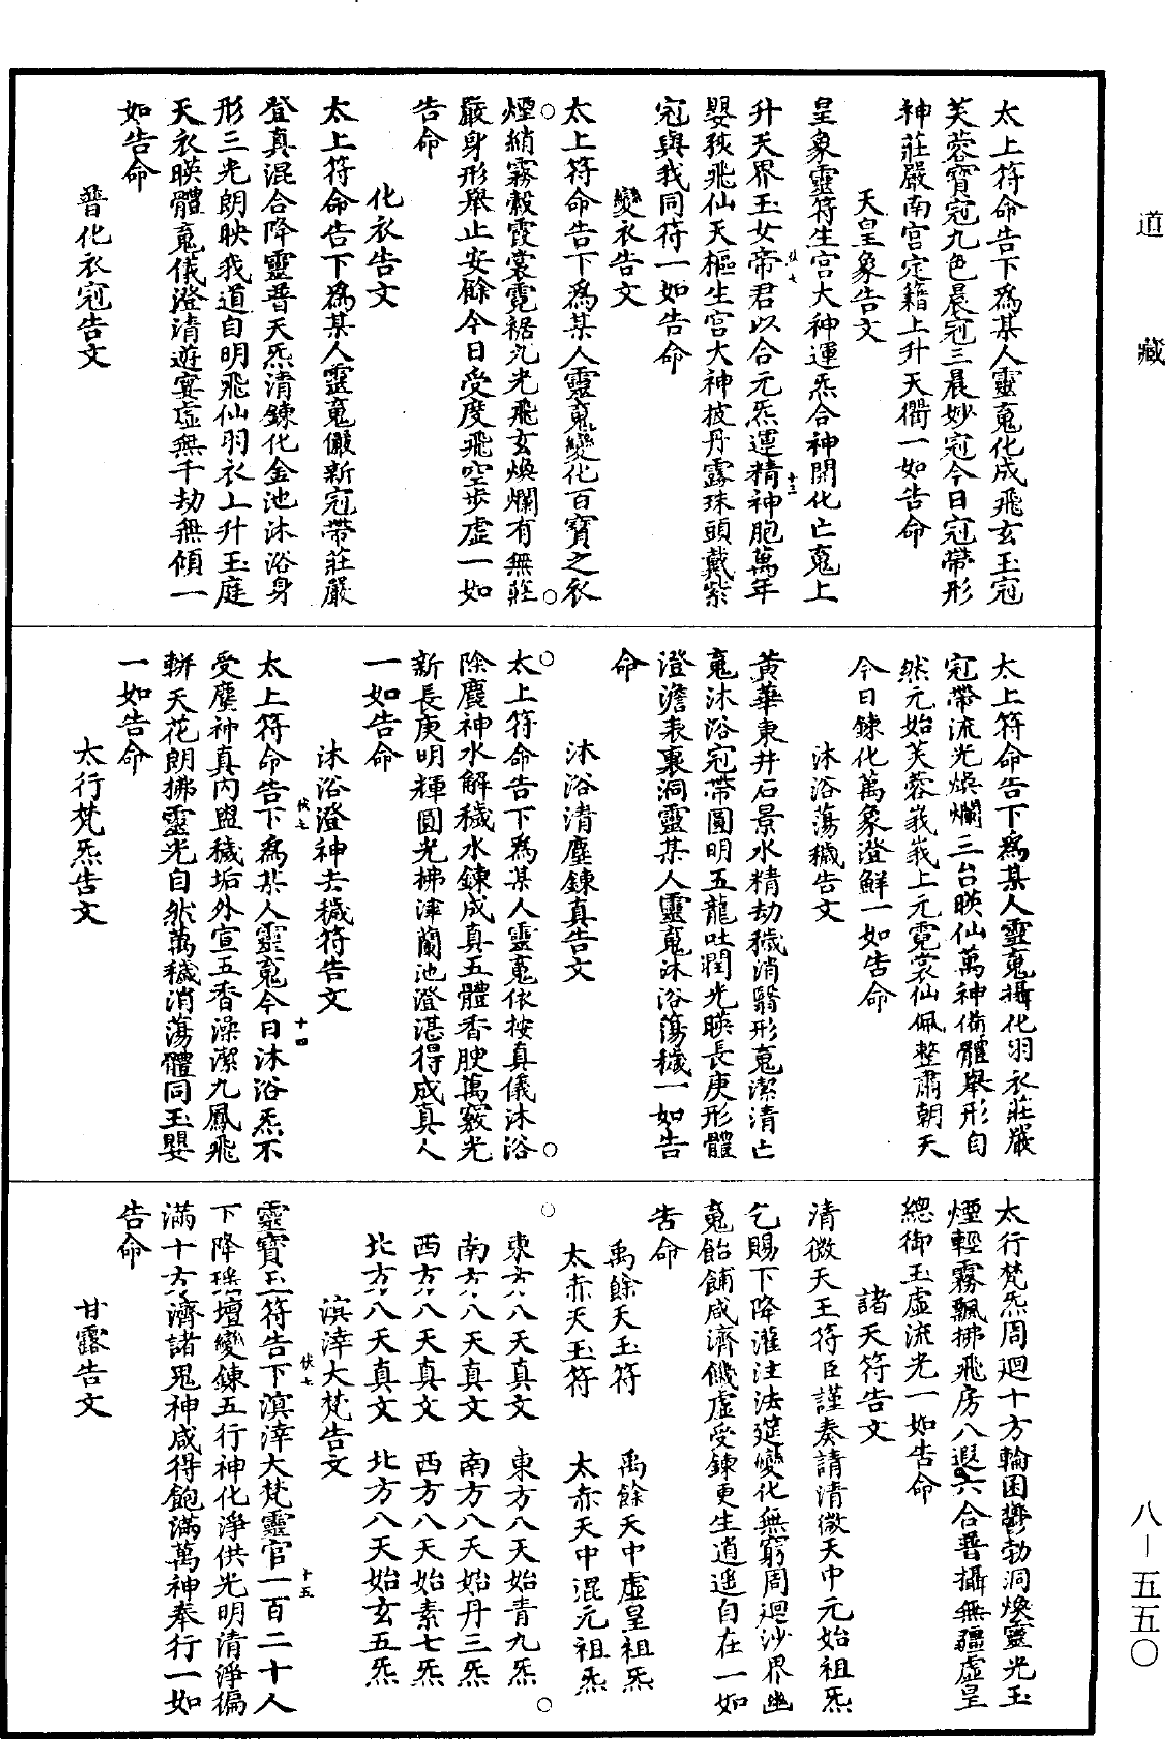 道藏
太上符命告下爲某人靈䰟化成飛玄玉冠
芙蓉寶冠九色晨冠三晨妙冠今日冠帶形
神莊嚴南宮定籍上升天衢一如告命
天皇象告文
皇象靈符生宮大神運炁合神開化亡䰟上
升天界玉女帝君以合元炁運精神胞萬年
嬰孩飛仙天樞生宮大神披丹露珠頭戴紫
冠與我同符一如告命
變衣告文
太上符命告下爲某人靈䰟變化百寶之衣
煙綃霧縠霞裳霓裾九光飛玄煥爛有無莊
嚴身形舉止安餘今日受度飛空步虛一如
告命
化衣告文
太上符命告下爲某人靈䰟儼新冠帶莊嚴
登真混合降靈普天炁清鍊化金池沐浴身
形三光朗映我道自明飛仙羽衣上升玉庭
天衣暎體䰟儀澄清遊宴虛無千劫無傾一
如告命
普化衣冠告文
太上符命告下爲某人靈䰟攝化羽衣莊嚴
冠帶流光煥爛三台暎仙萬神備體舉形自
然元始芙蓉峩峩上元霓裳仙佩整肅朝天
今日鍊化萬象澄鮮一如告命
沐浴蕩穢告文
黃華東井石景水精劫穢消翳形䰟潔清亡
䰟沐浴冠帶圓明五龍吐潤光暎長庚形體
澄澹表裏洞靈某人靈䰟沐浴蕩穢一如告
命
沐浴清塵鍊真告文
太上符命告下爲某人靈䰟依按真儀沐浴
除塵神水解穢水鍊成真五體香腴萬竅光
新長庚明輝圓光拂津蘭池澄湛得成真人
一如告命
沐浴澄神去穢符告文
太上符命告下爲某人靈䰟今日沐浴炁不
受塵神真内盥穢垢外宣五香澡潔九鳳飛
軿天花朗拂靈光自然萬穢消蕩體同玉嬰
一如告命
太行梵炁告文
太行梵炁周迴十方輪囷鬱勃洞煥靈光玉
煙輕霧飄拂飛房八遐六合普攝無疆虛皇
總御玉虛流光一如告命
諸天符告文
清微天玉符臣謹奏請清微天中元始祖炁
乞賜下降灌注法筵變化無窮周迴沙界幽
䰟飴餔咸濟饑虛受鍊更生逍遥自在一如
告命
禹餘天玉符　禹餘天中虛皇祖炁
太赤天玉符　太赤天中混元祖炁
東方八天真文　東方八天始青九炁
南方八天真文　南方八天始丹三炁
西方八天真文　西方八天始素七炁
北方八天真文　北方八天始玄五炁
溟涬大梵告文
靈寶玉符告下溟涬大梵靈官一百二十人
下降瑶壇變鍊五行神化淨供光明清淨徧
滿十方濟諸鬼神咸得飽滿萬神奉行一如
告命
甘露告文
伏七
十三
伏七
十四
伏七
十五
八—五五〇